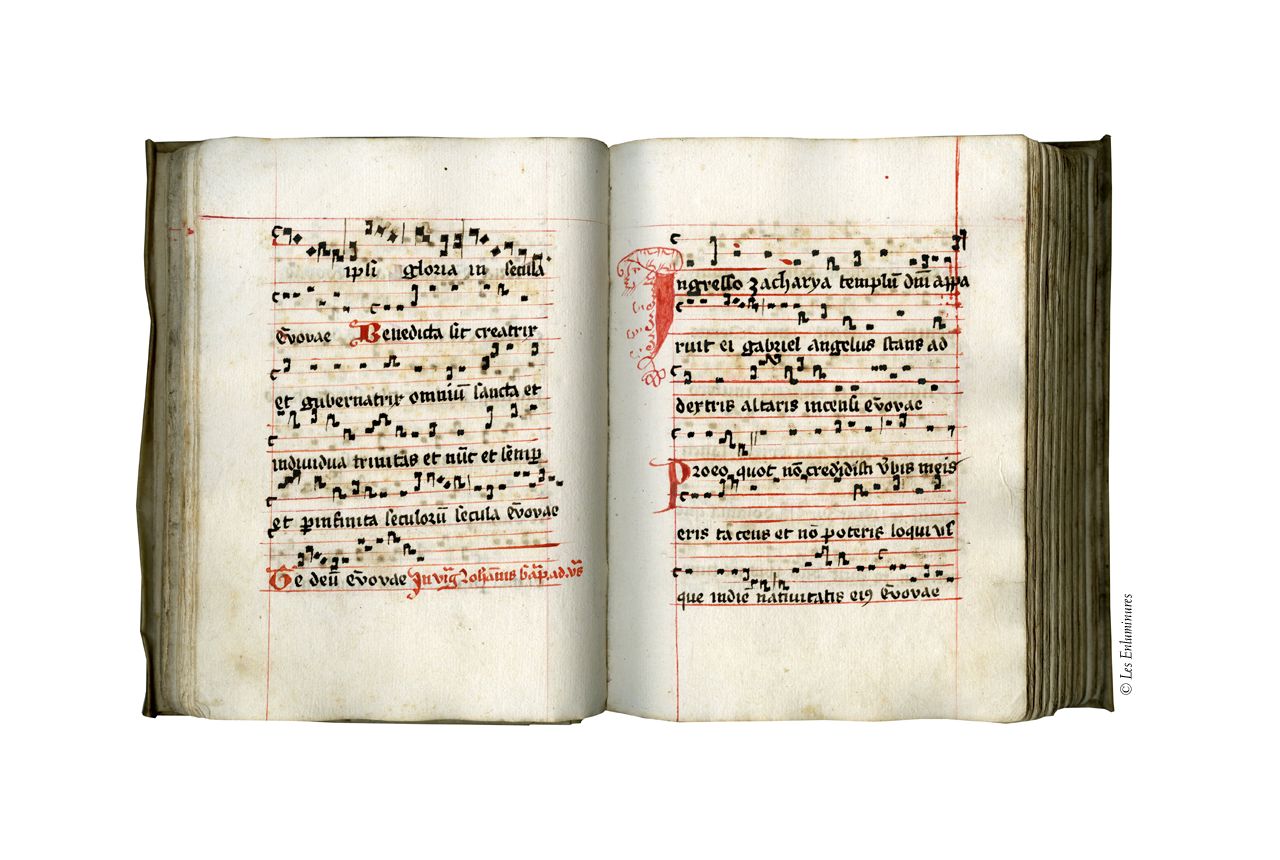 ipsi gloria in secula
Evovae Benedicta sit creatrix
et gubernatrix omniū sancta et
individua trinitas et nūc et semp
et pinfinita seculorū secula Evovae
Te deū Evovae In vig Iohannis bap ad vs
Ingresso zacharya templū dni appa
ruit ei gabriel angelus stans ad
dextris altaris incensi Evovae
Pro eo quot nō credidisti vbis meis
eris tacens et nō poteris loqui vs
que in diē nativitatis ei9 Evovae
© Les Enluminures